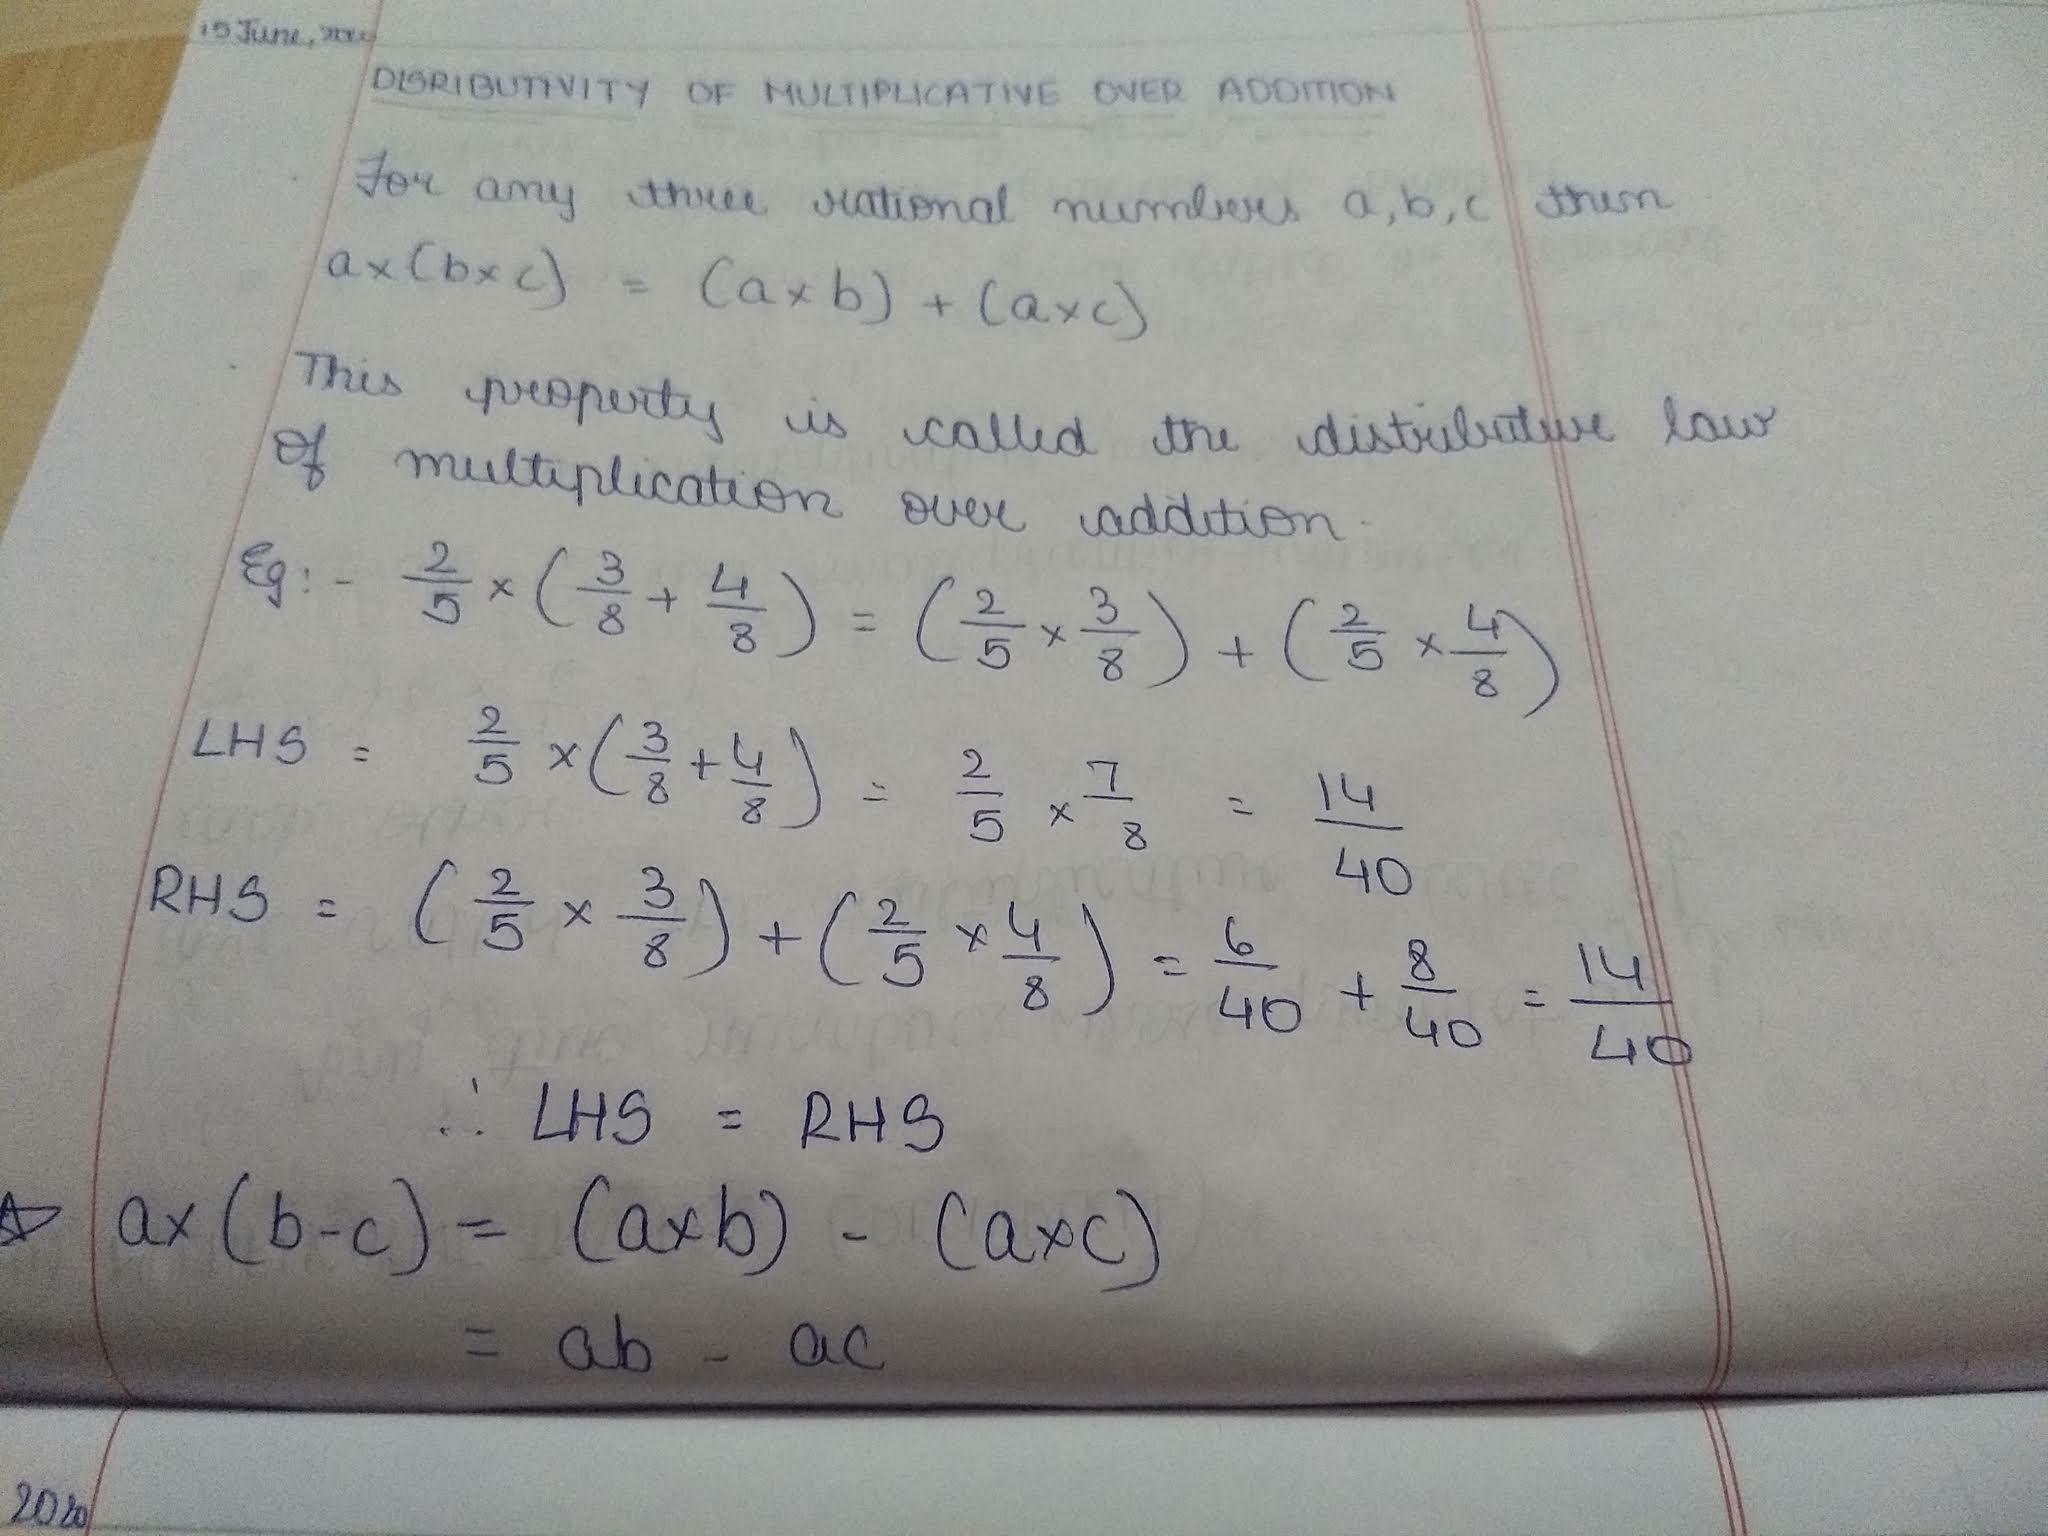 15 June, 2020
DISRIBUTIVITY OF MULTIPLICATIVE OVER ADDITION
For any three rational numbers a, b, c then
a×(b×c) = (a×b) + (a×c)
This property is called the distributive law
of multiplication over addition.
Eg:- 2/5 × (3/8 + 4/8) = (2/5 × 3/8) + (2/5 × 4/8)
LHS = 2/5 × (3/8 + 4/8) = 2/5 × 7/8 = 14/40
RHS = (2/5 × 3/8) + (2/5 × 4/8) = 6/40 + 8/40 = 14/40
∴ LHS = RHS
☆ a×(b-c) = (a×b) - (a×c)
= ab - ac
2020